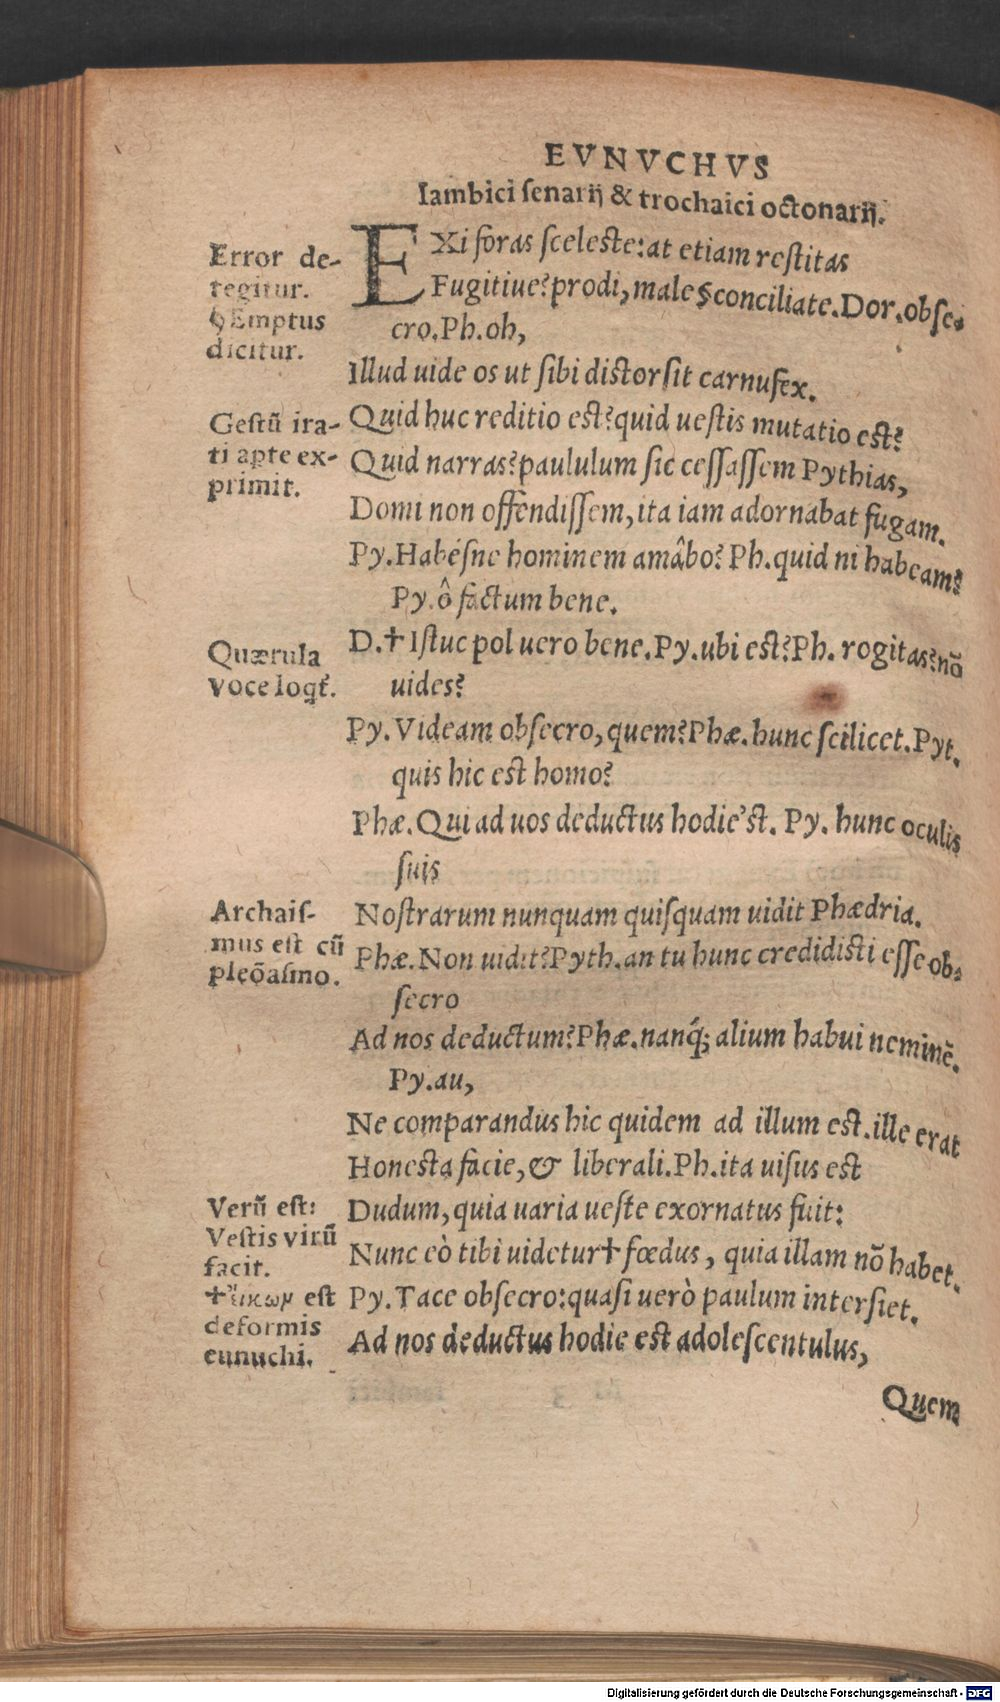 EVNVCHVS
Iambici senarij & trochaici octonarij.
Error de-
tegitur.
Emptus
dicitur.
EXi foras sceleste: at etiam restitas
Fugitiue? prodi, male conciliate. Dor. obse-
cro. Ph. oh,
Illud uide os ut sibi distorsit carnufex.
Gestū ira-
ti apte ex-
primit.
Quid huc reditio est? quid uestis mutatio est?
Quid narras? paululum sic cessassem Pythias,
Domi non offendissem, ita iam adornabat fugam.
Py. Habésne hominem amâbo? Ph. quid ni habeam?
Py. ô factum bene.
Quærula
voce loqt̃.
D. † Istuc pol uero bene. Py. ubi est? Ph. rogitas? nō
uides?
Py. Videam obsecro, quem? Phæ. hunc scilicet. Pyt.
quis hic est homo?
Phæ. Qui ad uos deductus hodie'st. Py. hunc oculis
suis
Archais-
mus est cū
pleōasmo.
Nostrarum nunquam quisquam uidit Phædria.
Phæ. Non uidit? Pyth. an tu hunc credidisti esse ob-
secro
Ad nos deductum? Phæ. nanq́; alium habui neminē.
Py. au,
Ne comparandus hic quidem ad illum est. ille erat
Honesta facie, & liberali. Ph. ita uisus est
Verū est:
Vestis virū
facit.
† est
deformis
eunuchi.
Dudum, quia uaria ueste exornatus fuit:
Nunc eò tibi uidetur † fœdus, quia illam nō habet.
Py. Tace obsecro: quasi uerò paulum intersiet.
Ad nos deductus hodie est adolescentulus,
Quem
Digitalisierung gefördert durch die Deutsche Forschungsgemeinschaft - DFG